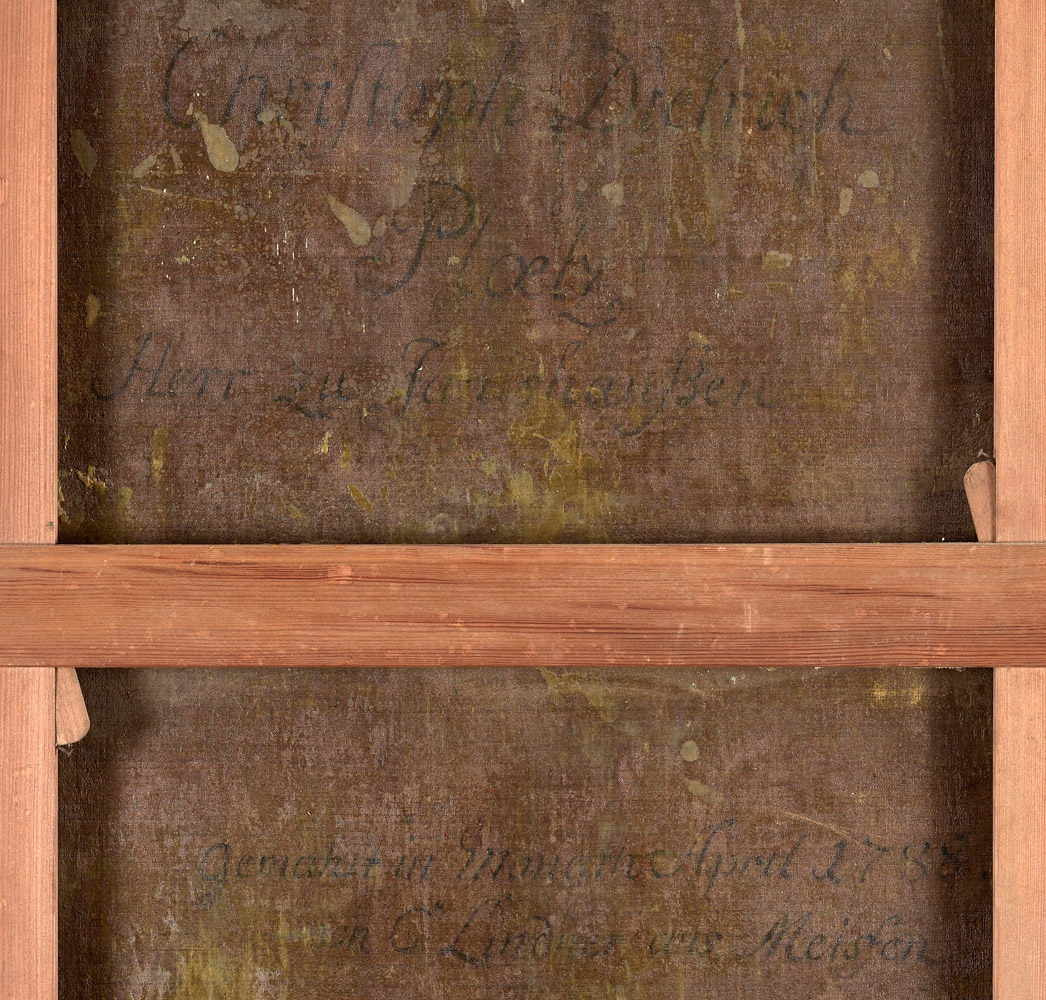 Chriſtoph Dietrich
Ploetz
Herr zu Jarchaußen
gemahlt in Monath April 1788.
von C. Lindner aus Meisſen